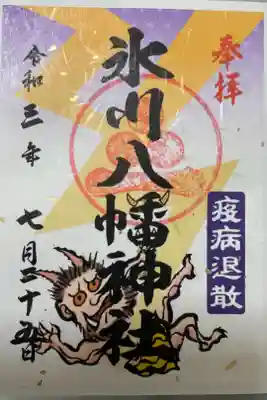 奉拝
疫病退散
氷川八幡神社
令和三年 七月二十五日